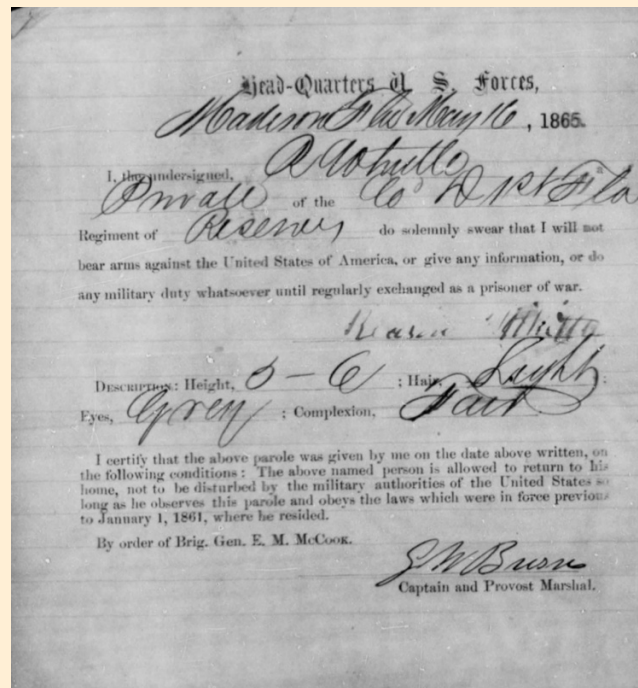 Head-Quarters U. S. Forces,
Madison Fla May 16, 1865.
I, the undersigned, R Whitt
Private of the Co D 1st Fla
Regiment of Reserves do solemnly swear that I will not
bear arms against the United States of America, or give any information, or do
any military duty whatsoever until regularly exchanged as a prisoner of war.
DESCRIPTION: Height, 5-6; Hair, Light;
Eyes, Grey; Complexion, Fair
I certify that the above parole was given by me on the date above written, on
the following conditions: The above named person is allowed to return to his
home, not to be disturbed by the military authorities of the United States so
long as he observes this parole and obeys the laws which were in force previous
to January 1, 1861, where he resided.
By order of Brig. Gen. E. M. McCook.
Captain and Provost Marshal.